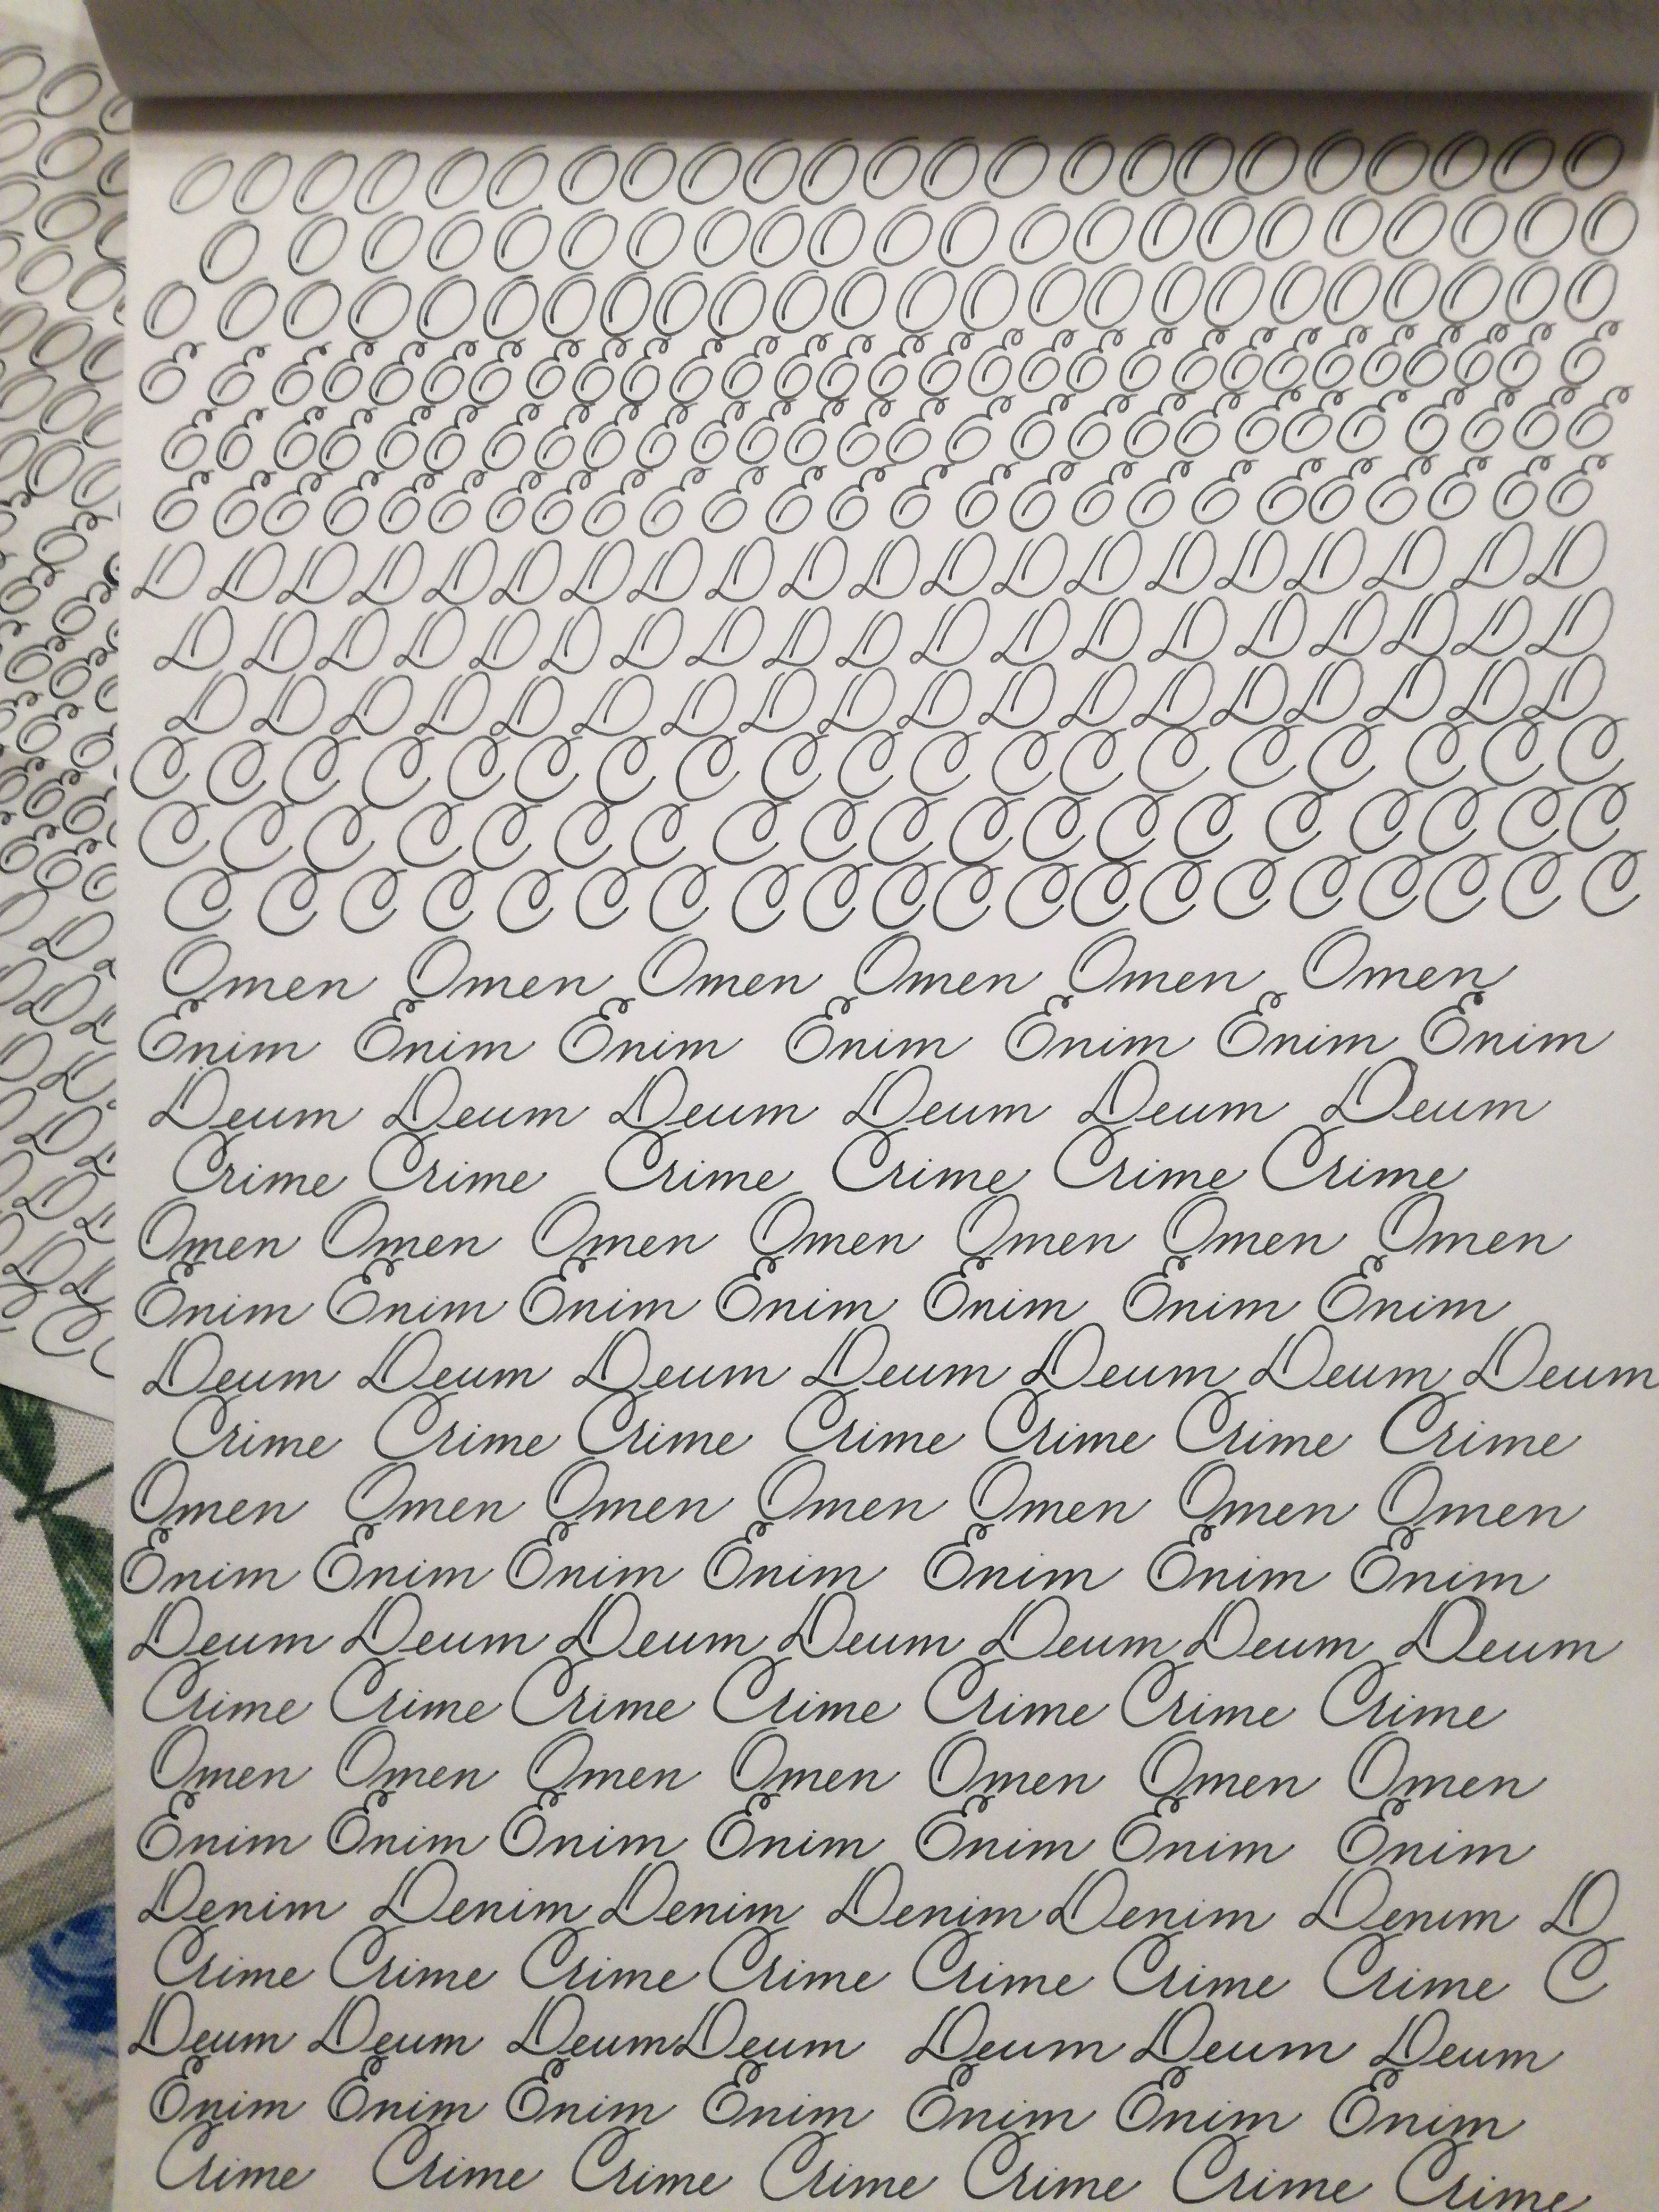 O O O O O O O O O O O O O O O O O O O O O O O
O O O O O O O O O O O O O O O O O O O O O O
O O O O O O O O O O O O O O O O O O O O O O O O
E E E E E E E E E E E E E E E E E E E E E E E E E E E E E
E E E E E E E E E E E E E E E E E E E E E E E E E E E
E E E E E E E E E E E E E E E E E E E E E E E E E
D D D D D D D D D D D D D D D D D D D D
D D D D D D D D D D D D D D D D D D D
D D D D D D D D D D D D D D D D D D
C C C C C C C C C C C C C C C C C C C
C C C C C C C C C C C C C C C C C C C
C C C C C C C C C C C C C C C C C C C C
Omen Omen Omen Omen Omen Omen
Enim Enim Enim Enim Enim Enim Enim
Deum Deum Deum Deum Deum Deum
Crime Crime Crime Crime Crime Crime
Omen Omen Omen Omen Omen Omen Omen
Enim Enim Enim Enim Enim Enim Enim
Deum Deum Deum Deum Deum Deum Deum
Crime Crime Crime Crime Crime Crime Crime
Omen Omen Omen Omen Omen Omen Omen
Enim Enim Enim Enim Enim Enim Enim
Deum Deum Deum Deum Deum Deum Deum
Crime Crime Crime Crime Crime Crime Crime
Omen Omen Omen Omen Omen Omen Omen
Enim Enim Enim Enim Enim Enim Enim
Denim Denim Denim Denim Denim Denim D
Crime Crime Crime Crime Crime Crime Crime C
Deum Deum Deum Deum Deum Deum Deum
Enim Enim Enim Enim Enim Enim Enim
Crime Crime Crime Crime Crime Crime Crime